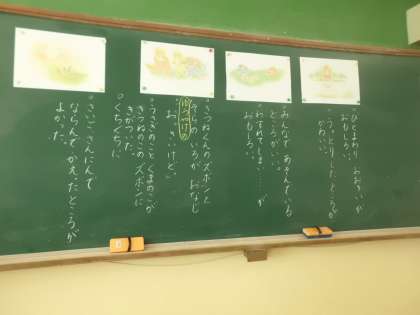 ひとまわり おおきいが
おもしろい。
うっとりしたところが
かわいい。
みんなで あるいている
ところがいい。
わすれてしまい……が
おもしろい。
きつねくんのズボンと
そらの いろが おなじ
ゆうやけの
うさぎのこと くまのこが
きつねのこの ズボンに
きがついた。
くちぐちに
さいご さんにんで
ならんで かえったところが
よかった。